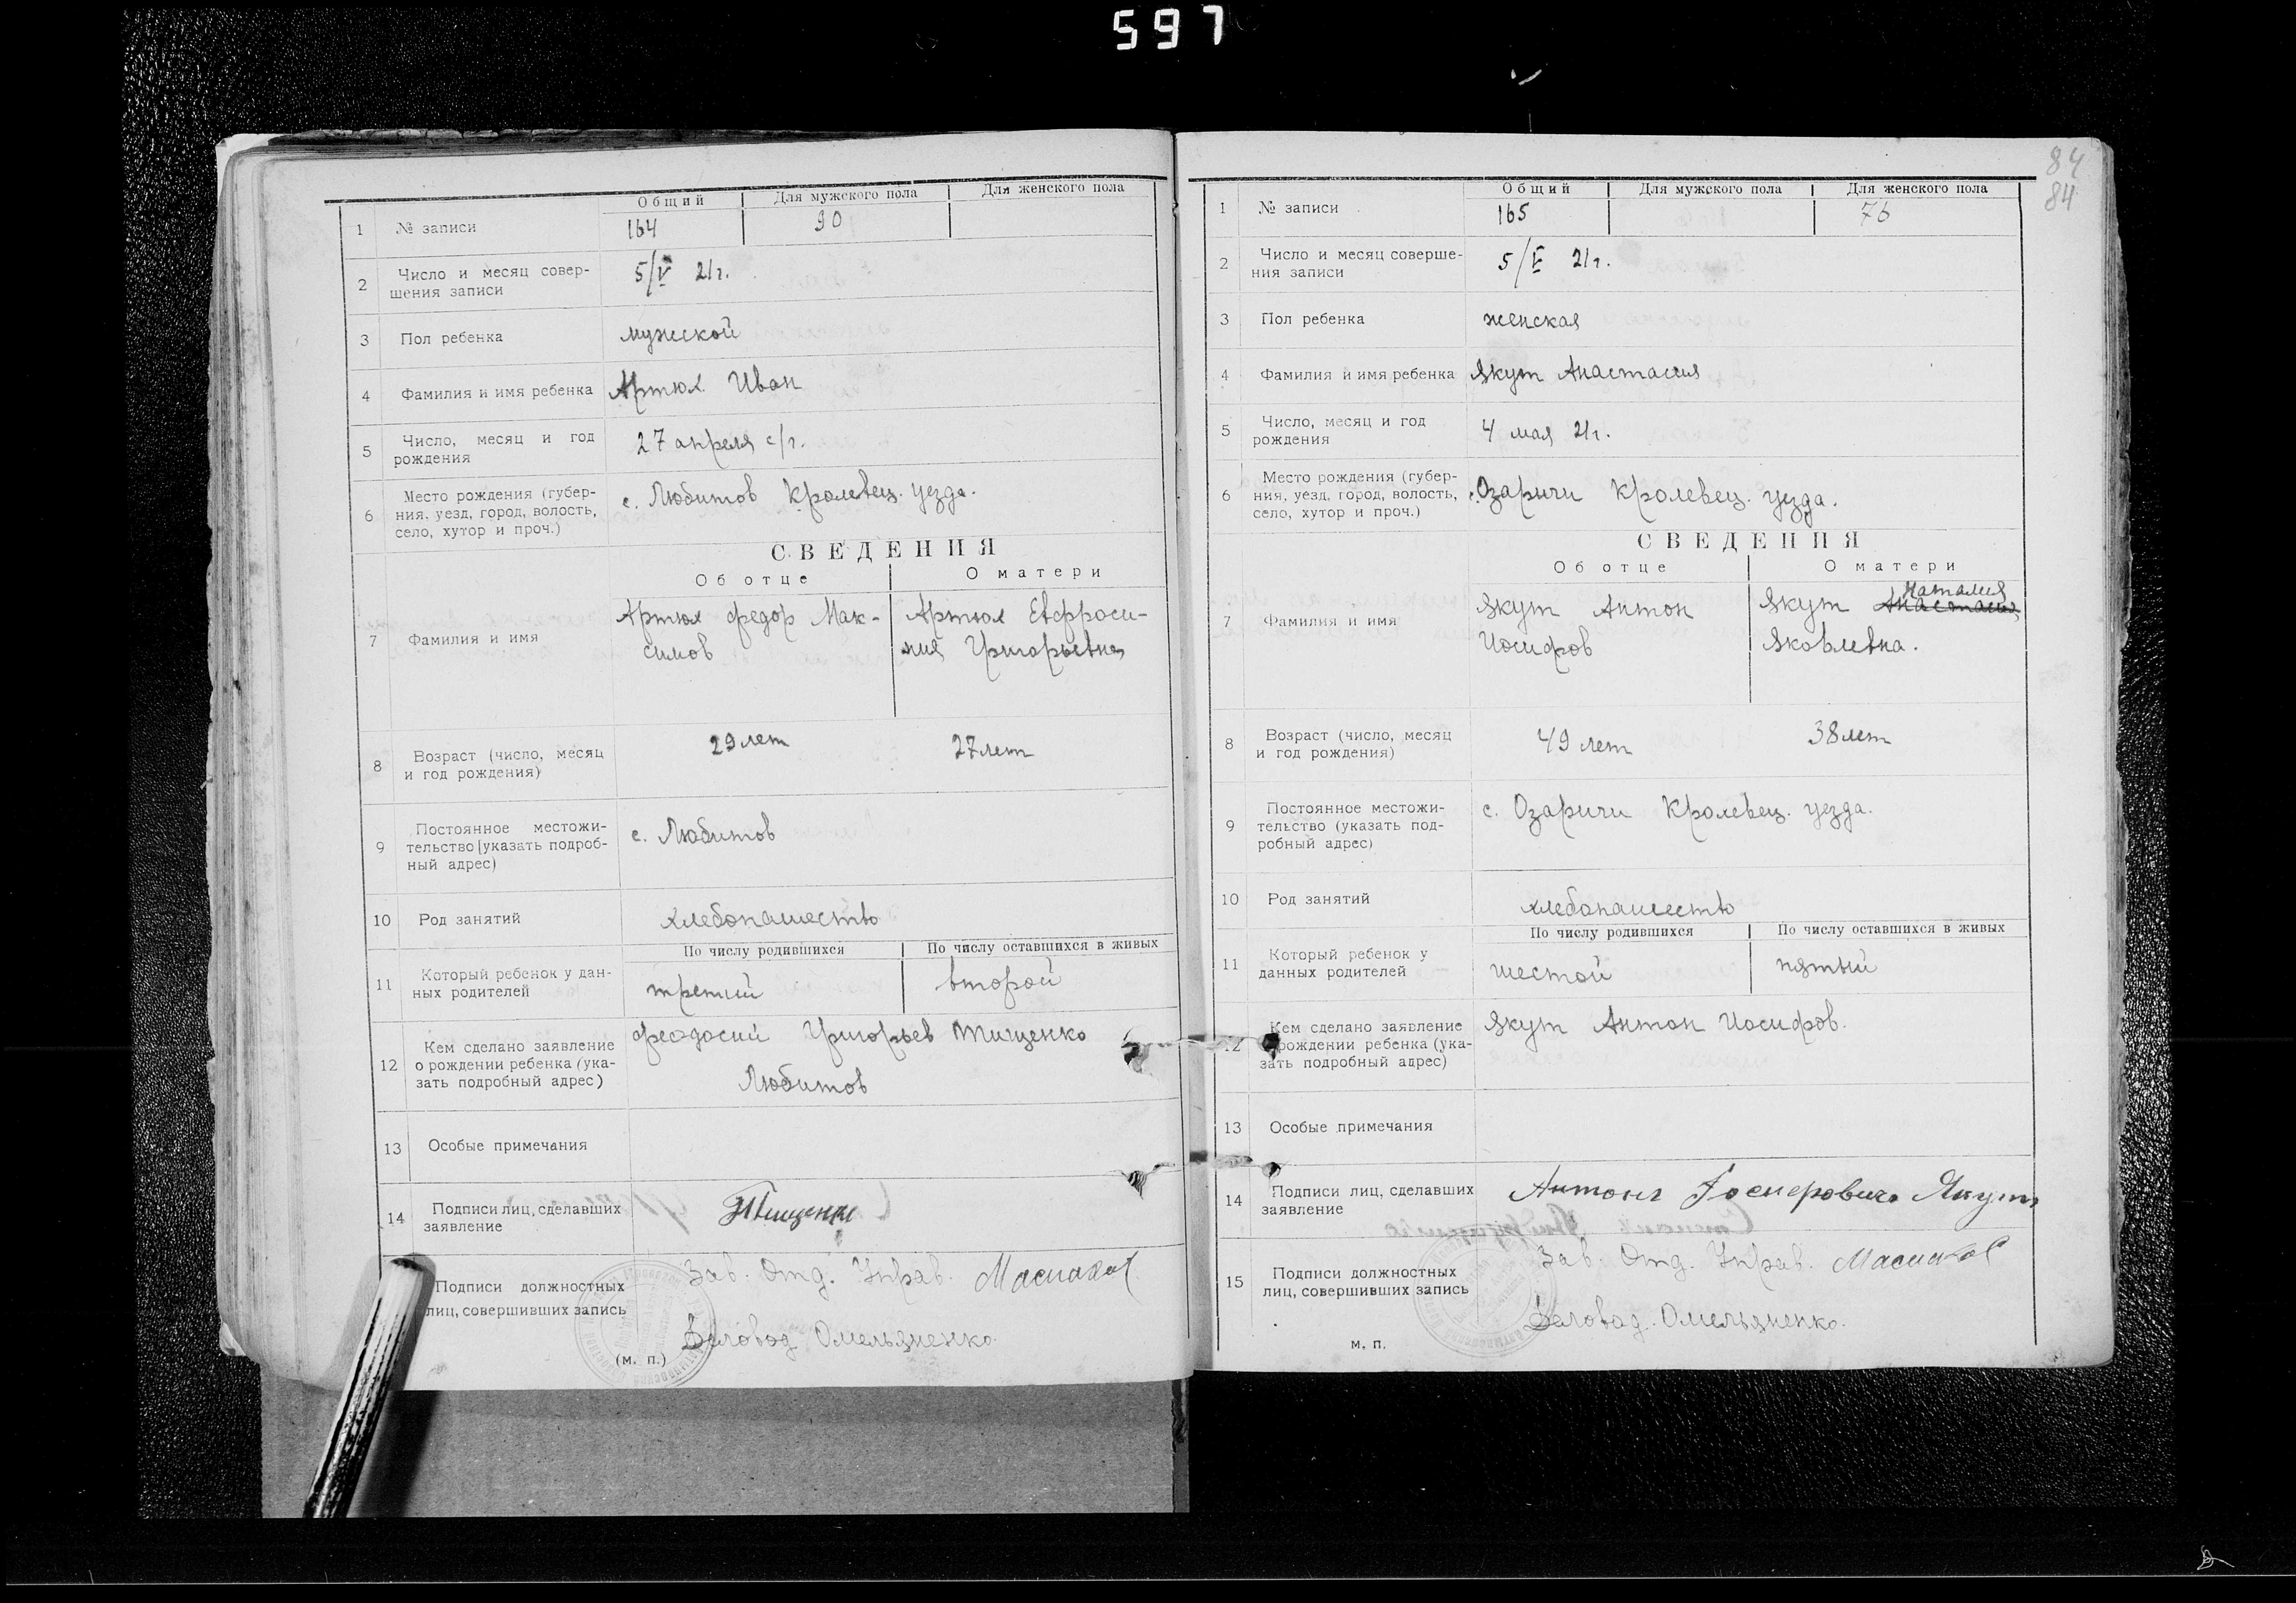 597
Общий Для мужского пола Для женского пола
1 № записи 164 90
2 Число и месяц совер-
шения записи 5/V 21г.
3 Пол ребенка мужской
4 Фамилия и имя ребенка Артюх Иван
5 Число, месяц и год
рождения 27 апреля с/г.
6 Место рождения (губер-
ния, уезд, город, волость,
село, хутор и проч.) с. Любитов Кролевец. уезда.
СВЕДЕНИЯ
Об отце О матери
7 Фамилия и имя
Артюх Федор Мак-
симов
Артюх Евфроси-
ния Григорьевна
8 Возраст (число, месяц
и год рождения) 29 лет 27 лет
9 Постоянное местожи-
тельство (указать подроб-
ный адрес) с. Любитов
10 Род занятий хлебопашество
По числу родившихся По числу оставшихся в живых
11 Который ребенок у дан-
ных родителей третий второй
12 Кем сделано заявление
о рождении ребенка (ука-
зать подробный адрес)
Феодосий Григорьев Тищенко
Любитов
13 Особые примечания
14 Подписи лиц, сделавших
заявление Тищенко
Подписи должностных
лиц, совершивших запись
Зав. Отд. Управ.
Деловод. Омельяненко.
(м. п.)
84
84
Общий Для мужского пола Для женского пола
1 № записи 165 76
2 Число и месяц соверше-
ния записи 5/V 21г.
3 Пол ребенка женская
4 Фамилия и имя ребенка Якут Анастасия
5 Число, месяц и год
рождения 4 мая 21г.
6 Место рождения (губер-
ния, уезд, город, волость,
село, хутор и проч.) с. Озаричи Кролевец. уезда.
СВЕДЕНИЯ
Об отце О матери
7 Фамилия и имя
Якут Антон
Иосифов
Наталия
Якут Анастасия
Яковлевна.
8 Возраст (число, месяц
и год рождения) 49 лет 38 лет
9 Постоянное местожи-
тельство (указать под-
робный адрес) с. Озаричи Кролевец. уезда.
10 Род занятий хлебопашество
По числу родившихся По числу оставшихся в живых
11 Который ребенок у
данных родителей шестой пятый
12 Кем сделано заявление
рождении ребенка (ука-
зать подробный адрес) Якут Антон Иосифов.
13 Особые примечания
14 Подписи лиц, сделавших
заявление Антонъ Іосиеровичъ Якутъ
15 Подписи должностных
лиц, совершивших запись
Зав. Отд. Управ.
Деловод. Омельяненко.
м. п.